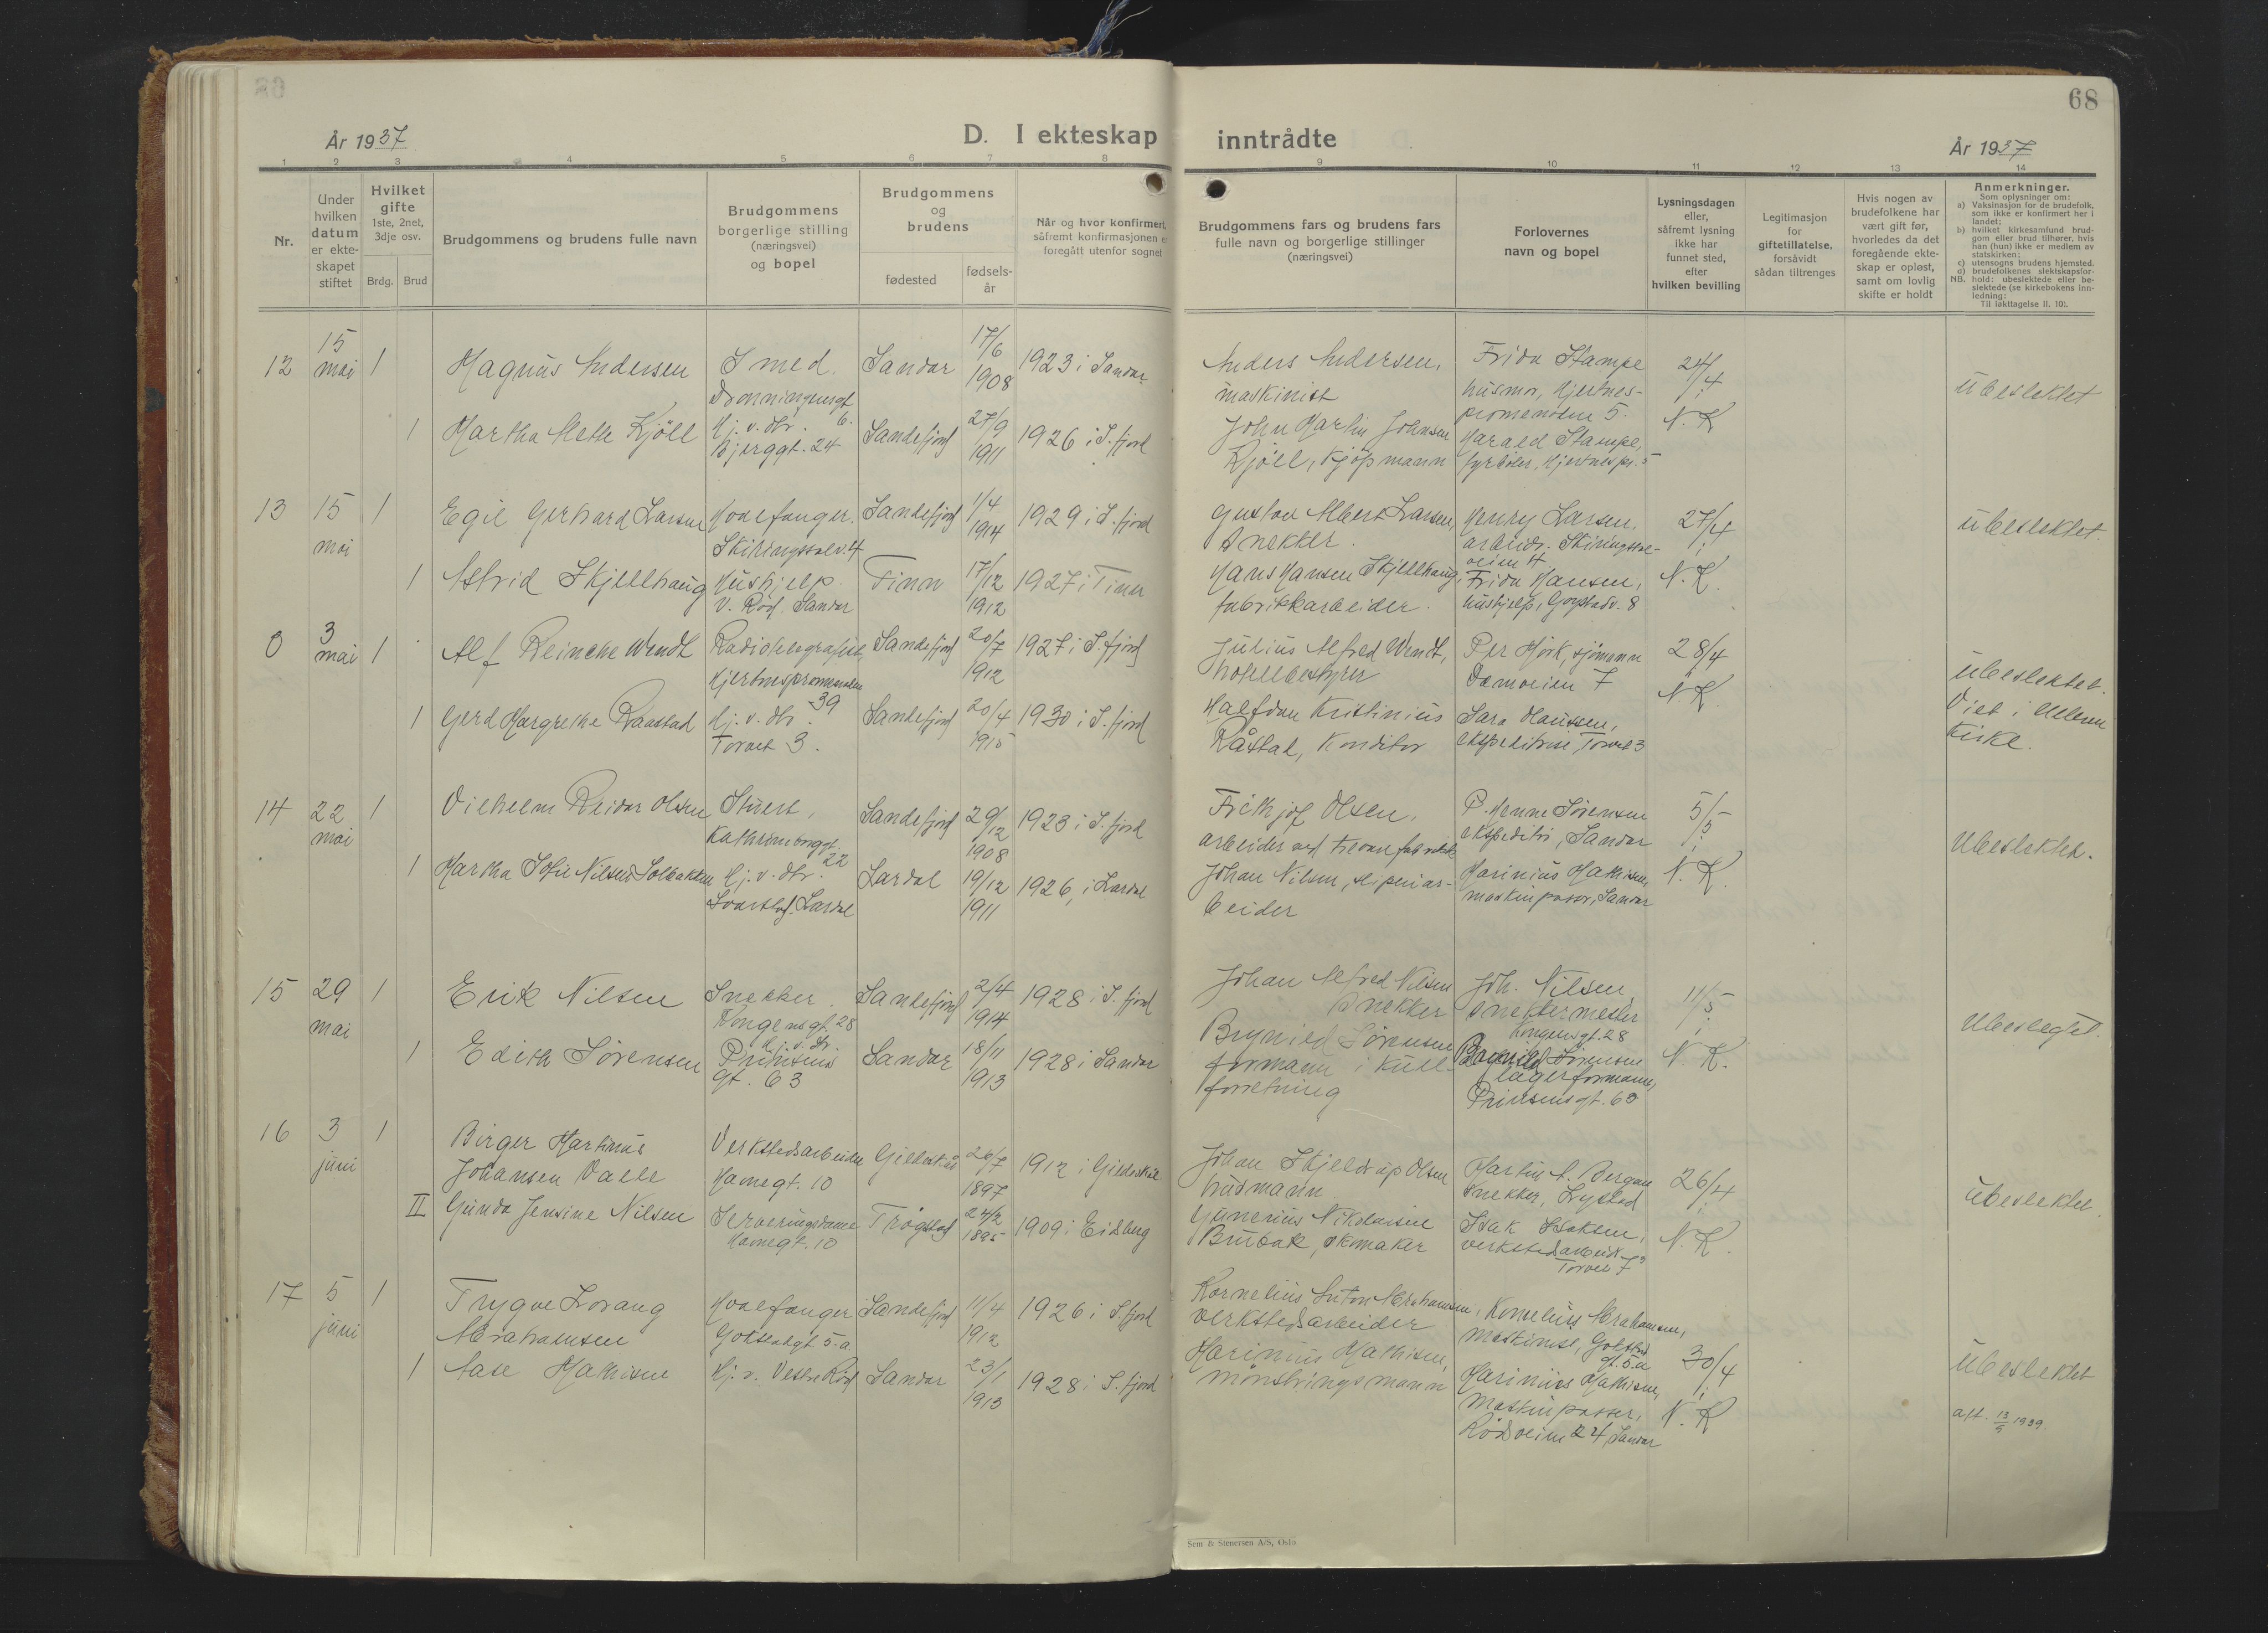 68
År 1937
D. I ekteskap inntrådte
År 1937
1 2 3 4 5 6 7 8 9 10 11 12 13 14
Nr.
Under
hvilken
datum
er ekte-
skapet
stiftet
Hvilket
gifte
1ste, 2net,
3dje osv.
Brdg. Brud
Brudgommens og brudens fulle navn
Brudgommens
borgerlige stilling
(næringsvei)
og bopel
Brudgommens
og
brudens
fødested
fødsels-
år
Når og hvor konfirmert,
såfremt konfirmasjonen er
foregått utenfor sognet
Brudgommens fars og brudens fars
fulle navn og borgerlige stillinger
(næringsvei)
Forlovernes
navn og bopel
Lysningsdagen
eller,
såfremt lysning
ikke har
funnet sted,
efter
hvilken bevilling
Legitimasjon
for
giftetillatelse,
forsåvidt
sådan tiltrenges
Hvis nogen av
brudefolkene har
vært gift før,
hvorledes da det
foregående ekte-
skap er opløst,
samt om lovlig
skifte er holdt
Anmerkninger.
Som oplysninger om:
a) Vaksinasjon for de brudefolk,
som ikke er konfirmert her i
landet;
b) hvilket kirkesamfund brud-
gom eller brud tilhører, hvis
han (hun) ikke er medlem av
statskirken;
c) utensogns brudens hjemsted.
d) brudefolkenes slektskapsfor-
NB. hold: ubeslektede eller be-
slektede (se kirkebokens inn-
ledning:
Til iakttagelse II. 10).
12
15
mai
1
Magnus Andersen
Smed.
Dronningensgt
6.
Sandar
17/6
1908
1923 i Sandar
Anders Andersen,
maskinist
Frida Stampe
husmor, Hjertnes-
promenaden 5.
24/4
N. K
Ubeslektet
1
Martha Mette Kjöll
Hj. v. dtr.
Bjerggt. 24
Sandefjord
27/9
1911
1926 i S. fjord
John Martin Johnsen
Kjöll, Kjöpmann
Harald Stampe,
fyrböter, Hjertnespr. 5
13
15
mai
1
Egil Gerhard Larsen
Hvalfanger.
Skiringssalv. 4
Sandefjord
1/4
1914
1929 i S. fjord
Gustav Albert Larsen,
Snekker.
Henry Larsen,
arbeider. Skiringssal-
veien 4
27/4
N. K.
Ubeslektet.
1
Astrid Skjellhaug
Hushjelp.
V. Röd, Sandar
Tinn
17/12
1912
1927 i Tinn
Hans Hansen Skjellhaug,
fabrikkarbeider.
Frida Hansen,
hushjelp, Gogstadv. 8
0
3
mai
1
Alf Reincke Wendt
Radiotelegrafist,
Hjertnespromenaden
39
Sandefjord
20/7
1912
1927 i S. fjord
Julius Alfred Wendt,
hotellbestyrer
Per Hörk, sjömann
Damveien 7
28/4
N. K.
Ubeslektet.
Viet i Ullern
kirke.
1
Gerd Margrethe Raastad
Hj. v. dtr.
Torvet 3.
Sandefjord
20/4
1915
1930 i S. fjord
Halfdan Kristinius
Råstad, Konditor
Sara Clausen,
ekspeditrise, Torvet 3
14
22
mai
1
Vilhelm Reidar Olsen
Stuert,
Kathrineborggt.
22
Sandefjord
29/12
1908
1923 i S. fjord
Frithjof Olsen,
arbeider ved trevarefabrikk
P. Henne Sörensen
ekspeditör, Sandar
5/5
N. K.
Ubeslektet.
1
Martha Sofie Nilsen Solbakken
Hj. v. dtr.
Svarstad. Lardal
Lardal
19/12
1911
1926, i Lardal
Johan Nilsen, sliperiar-
beider
Marinius Mathisen,
maskinpasser, Sandar
15
29
mai
1
Erik Nilsen
Snekker.
Kongensgt. 28
Sandefjord
2/4
1914
1928 i S. fjord
Johan Alfred Nilsen
snekker
Joh. Nilsen,
snekkermester
Kongensgt. 28
11/5
N. K.
Ubeslegtet.
1
Edith Sörensen
Hj. v. dr.
Prinsens
gt. 63
Sandar
18/11
1913
1928 i Sandar
Brynild Sörensen
formann i kull-
forretning
Brynild Sörensen
lagerformann,
Prinsensgt. 63
16
3
juni
1
Birger Martinus
Johansen Valle
Verkstedsarbeider
Havnegt. 10
Gildeskål
26/7
1897
1912 i Gildeskål
Johan Skjeldrup Olsen
husmann
Martin A. Bergan
snekker, Lystad
26/4
N. K.
Ubeslektet.
II
Gunda Jensine Nilsen
Serveringsdame
Havnegt. 10
Trögstad
24/2
1895
1909 i Eidsberg
Gunerius Nikolaisen
Brubak, skomaker
Isak Isaksen,
verkstedsarbeid.
Torvet 7
17
5
juni
1
Trygve Lorang
Abrahamsen
Hvalfanger
Gokstadgt 5.a
Sandefjord
11/4
1912
1926 i S. fjord
Kornelius Anton Abrahamsen,
verkstedsarbeider
Kornelius Abrahamsen,
maskinist, Gokstad
gt. 5a
30/4
N. K
Ubeslektet
att. 13/9 1939.
1
Aase Mathisen
Hj. v. Vestre Röd
Sandar
23/1
1913
1928 i S. fjord
Marinius Mathisen,
mönstringsmann
Marinius Mathisen,
maskinpasser,
Rödsveien 24, Sandar
Sem & Stenersen A/S, Oslo